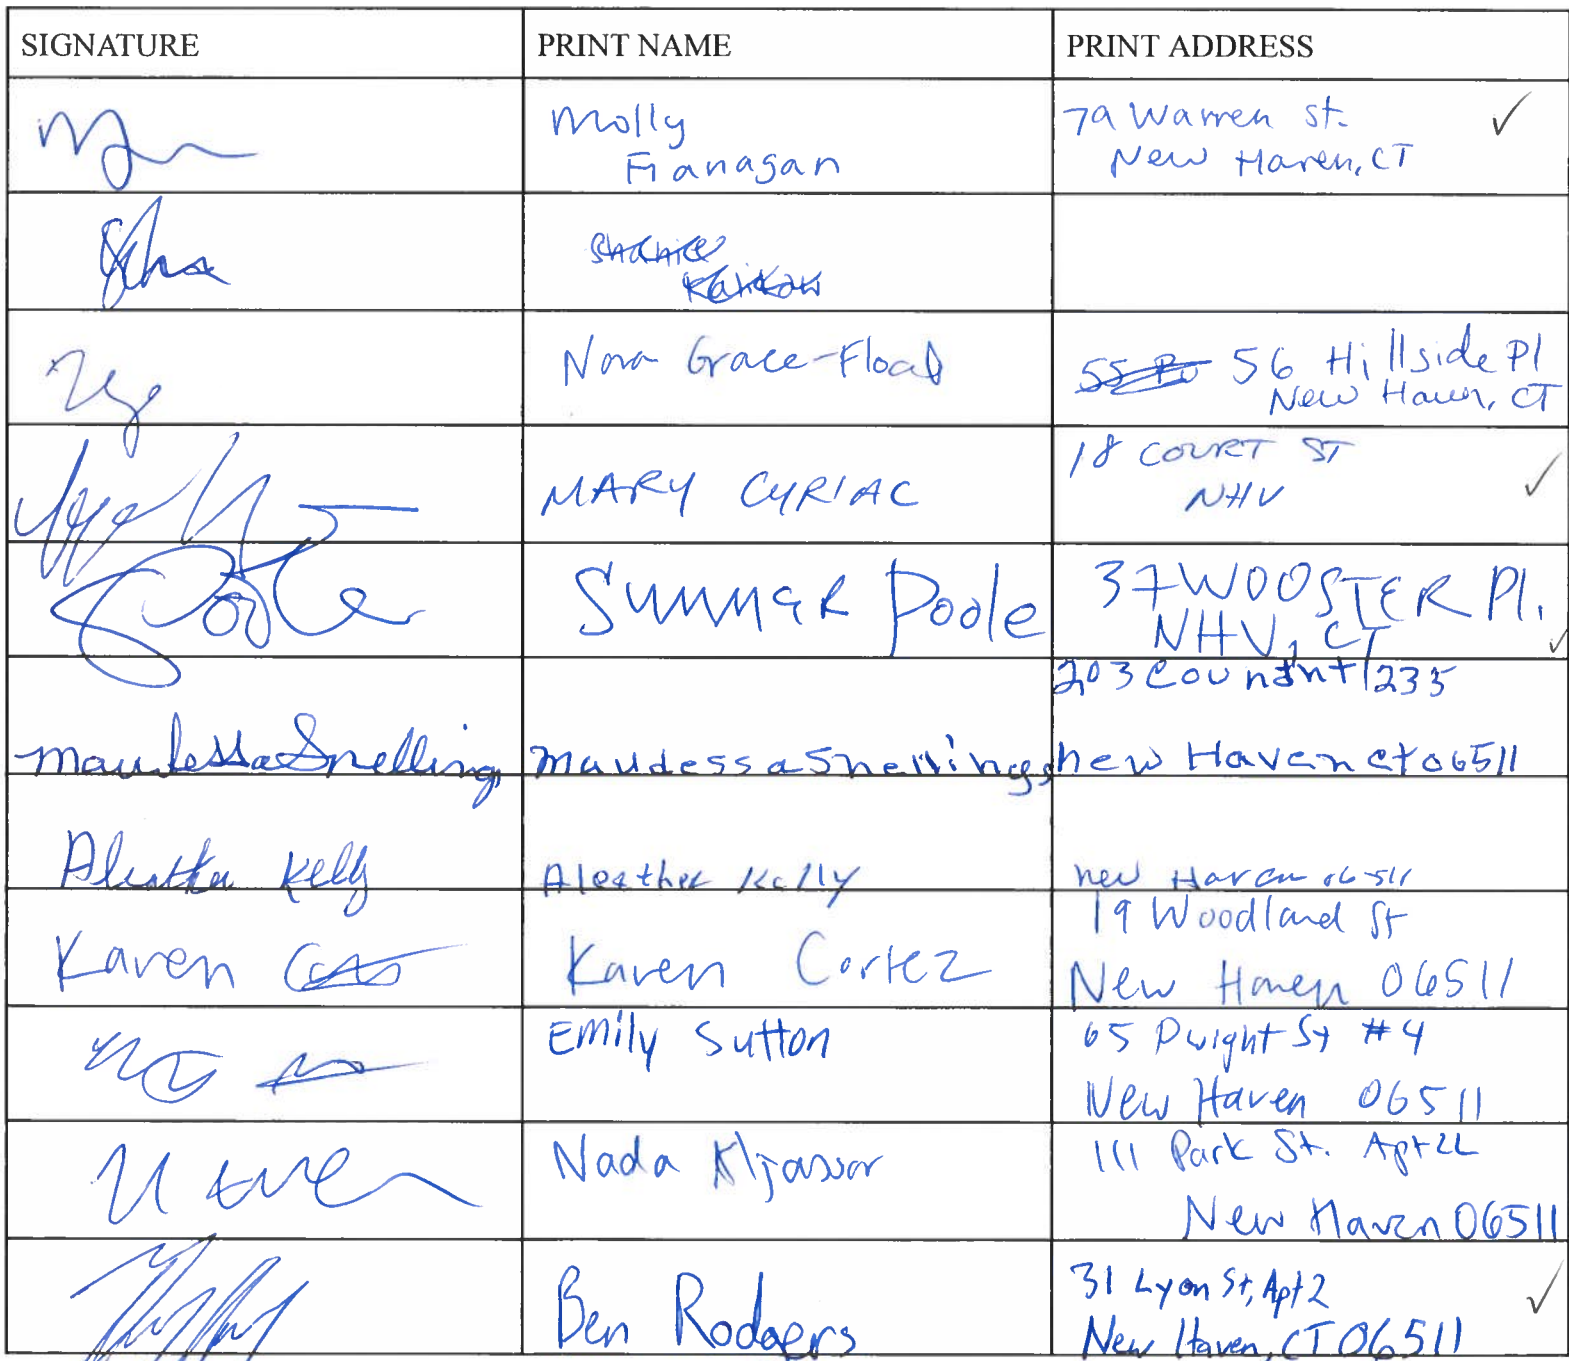 SIGNATURE PRINT NAME PRINT ADDRESS
Molly
Flanagan
79 Warren St. ✓
New Haven, CT
Nora Grace-Flood
56 Hillside Pl
New Haven, CT
MARY CYRIAC
18 COURT ST
NHV ✓
Summer Poole
37 WOOSTER Pl.
NHV, CT ✓
203 1235
maudessa Snellings maudessa Snellings new Haven ct 06511
Aleatha Kelly Aleather Kelly new Haven 06511
Karen Karen Cortez
19 Woodland St
New Haven 06511
Emily Sutton
65 Dwight St #4
New Haven 06511
Nada
111 Park St. Apt 2L
New Haven 06511
Ben Rodgers
31 Lyon St, Apt 2 ✓
New Haven, CT 06511